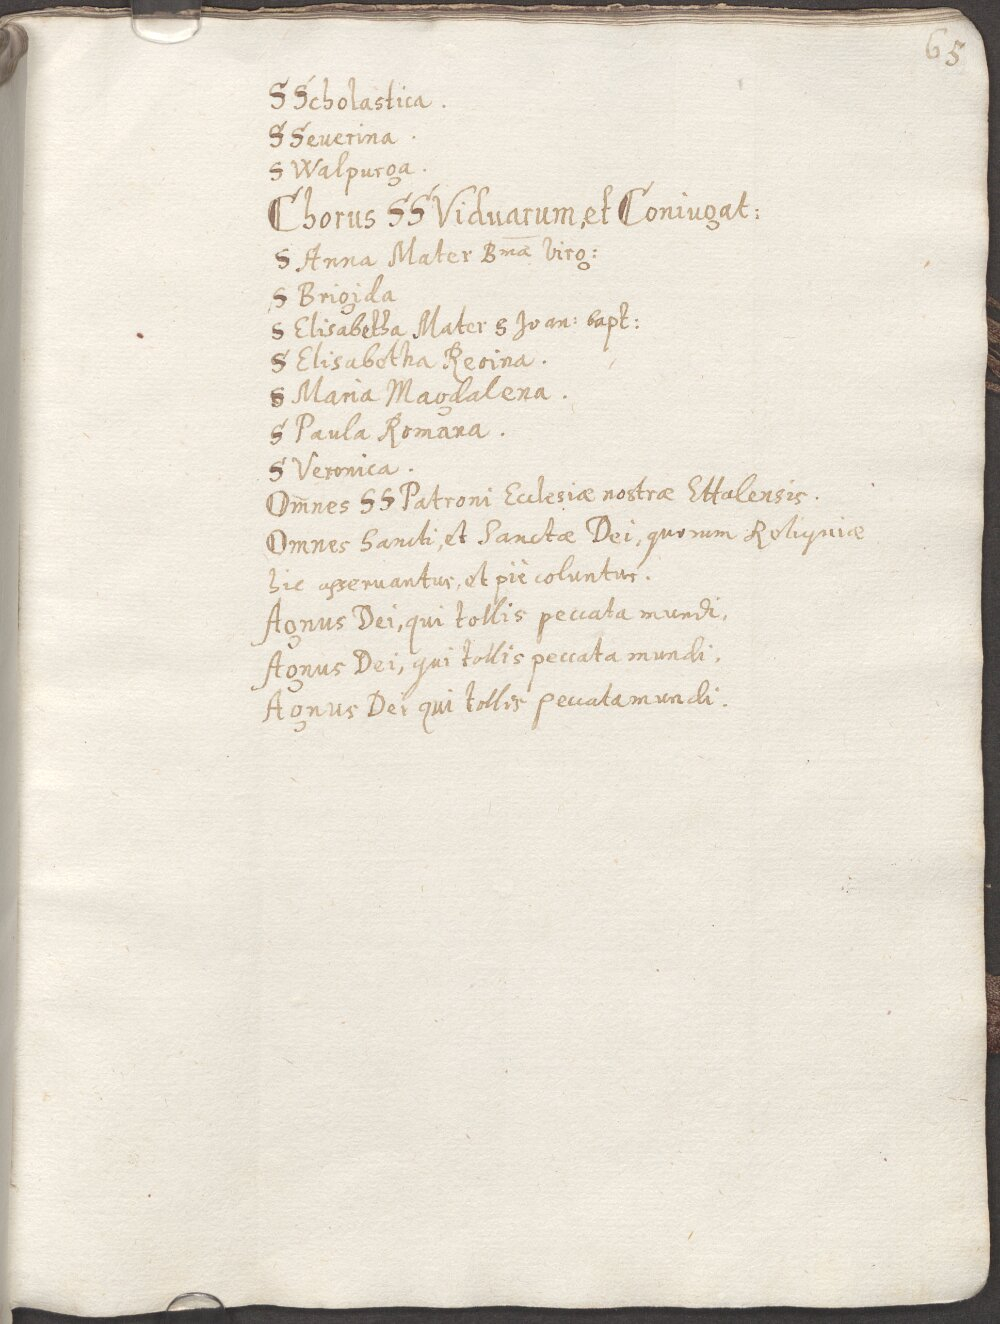 65
S Scholastica.
S Seuerina.
S Walpurga.
Chorus SS Viduarum, et Coniugat:
S Anna Mater Bmæ Virg:
S Brigida
S Elisabetha Mater S Joan: bapt:
S Elisabetha Regina.
S Maria Magdalena.
S Paula Romana.
S Veronica.
Om̄nes SS Patroni Ecclesiæ nostræ Ettalensis.
Omnes Sancti, et Sanctæ Dei, quorum Reliquiæ
hic asseruantur, et piè coluntur.
Agnus Dei, qui tollis peccata mundi,
Agnus Dei, qui tollis peccata mundi,
Agnus Dei qui tollis peccata mundi.